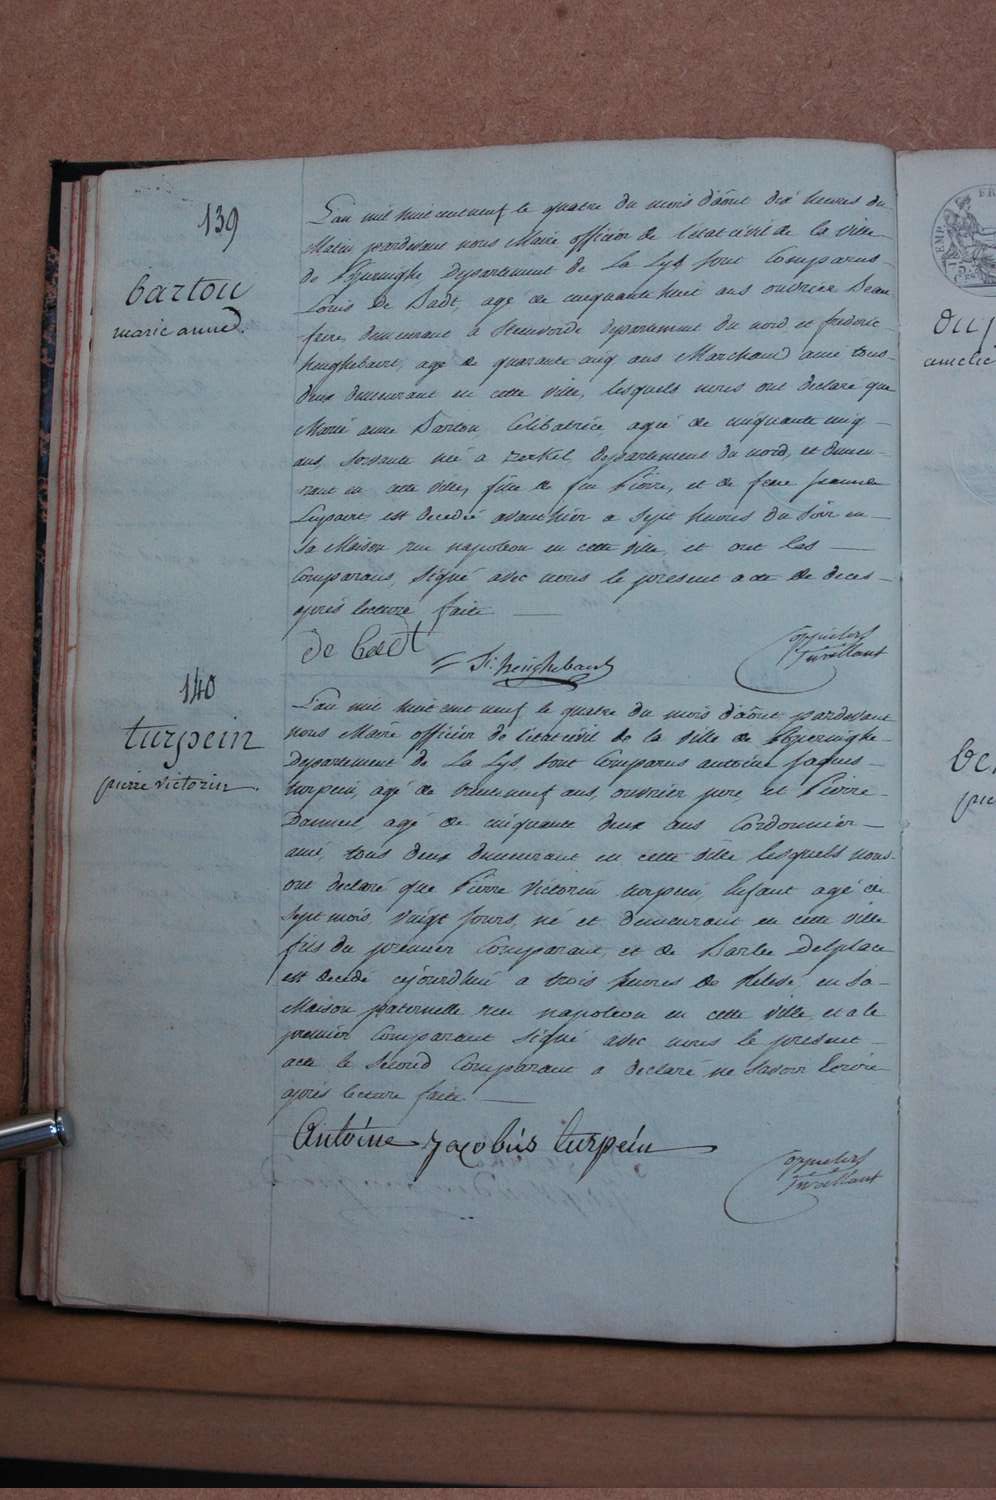 139
bartou
marie anne.
L'an mil huit cent neuf le quatre du mois d'aôut dix heures du
Matin pardevant nous Maire officier de l'etat civil de la ville
de departement de La Lys sont Comparus
Louis De Badt, agé de cinquante huit ans ouvrier Beau
frere, demeurant a Steenvorde departement du nord et frederic
henghebaert, agé de quarante cinq ans Marchand ami tous
deux demeurant en cette ville, lesquels nous ont declaré que
Marie anne Bartou, Celibatrice, agée de cinquante cinq
ans, servante née a departement du nord, et demeu-
rant en cette ville, fille de feu Pierre, et de feue jeanne
est decedée avant hier a sept heures du soir en
sa Maison rue napoleon en cette ville, et ont les
Comparans, signé avec nous le present acte de deces
aprés lecture faite.
de badt
henghebaert
140
turpein
pierre victorin.
L'an mil huit cent neuf le quatre du mois d'aôut pardevant
nous Maire officier de l'etat civil de la ville de
departement de La Lys, sont Comparus antoine jaques
turpein, agé de trente neuf ans, ouvrier pere, et Pierre
agé de cinquante deux ans Cordonnier
ami, tous deux demeurant en cette ville lesquels nous
ont declaré que Pierre victorin turpein, Enfant agé de
sept mois, vingt jours, né et demeurant en cette ville
fils du premier Comparant, et de Barbe Delplace
est decedé cejourdhui a trois heures de Relevé, en sa
Maison paternelle rue napoleon en cette ville, et a le
premier Comparant signé avec nous le present
acte le second Comparant a declaré ne savoir Ecrire
aprés lecture faite.
Antoine jacobus turpein